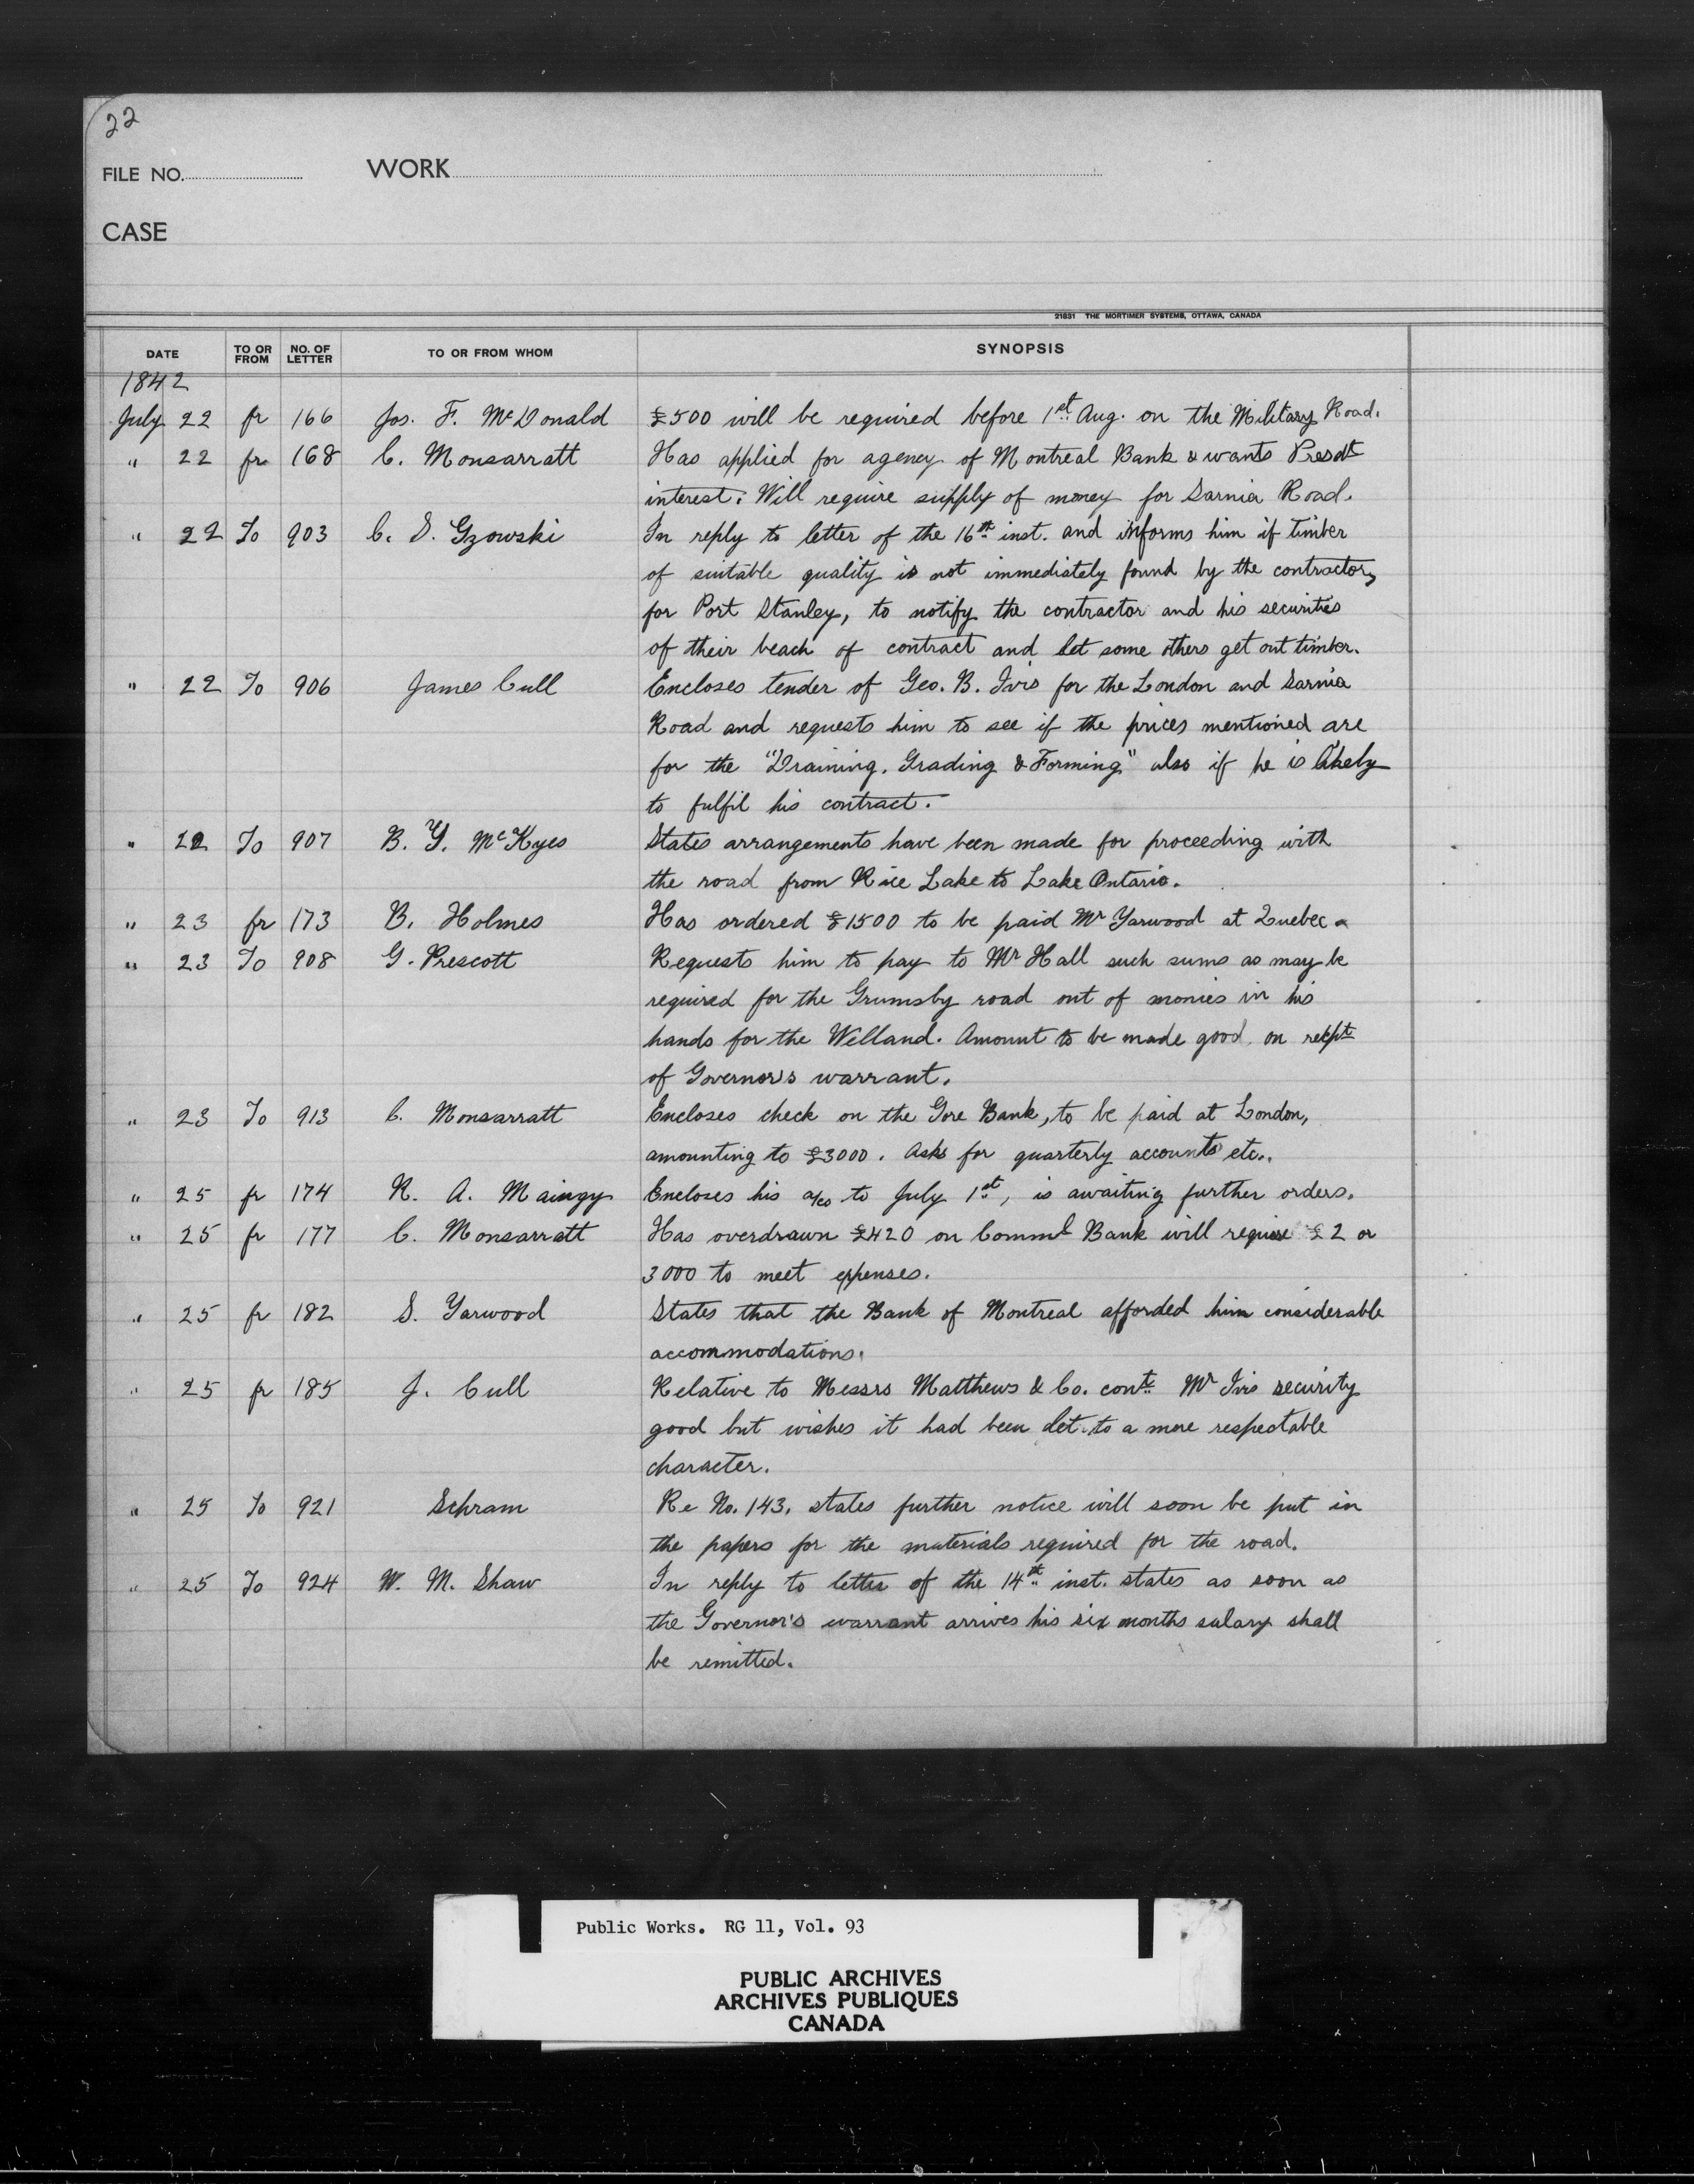 22
FILE NO. WORK
CASE
21831 THE MORTIMER SYSTEMS, OTTAWA, CANADA
DATE TO OR FROM NO. OF LETTER TO OR FROM WHOM SYNOPSIS
1842
July 22 fr 166 Jos. F. McDonald £500 will be required before 1st Aug. on the Military Road.
" 22 fr 168 C. Monsarratt Has applied for agency of Montreal Bank & wants Presdt
interest. Will require supply of money for Sarnia Road.
" 22 To 903 C. S. Gzowski In reply to letter of the 16th inst. and informs him if timber
of suitable quality is not immediately found by the contractor,
for Port Stanley, to notify the contractor and his securities
of their beach of contract and let some others get out timber.
" 22 To 906 James Cull Encloses tender of Geo. B. Ivis for the London and Sarnia
Road and requests him to see if the prices mentioned are
for the "Draining, Grading & Forming" also if he is likely
to fulfil his contract.
" 22 To 907 B. Y. McKyes States arrangements have been made for proceeding with
the road from Rice Lake to Lake Ontario.
" 23 fr 173 B. Holmes Has ordered £1500 to be paid Mr Yarwood at Quebec.
" 23 To 908 G. Prescott Requests him to pay to Mr Hall such sums as may be
required for the Grumsby road out of monies in his
hands for the Welland. Amount to be made good on
of Governor's warrant.
" 23 To 913 C. Monsarratt Encloses check on the Gore Bank, to be paid at London,
amounting to £3000. Asks for quarterly accounts etc..
" 25 fr 174 R. A. Maingy Encloses his a/cs to July 1st, is awaiting further orders.
" 25 fr 177 C. Monsarratt Has overdrawn £420 on Comml Bank will require £2 or
3000 to meet expenses.
" 25 fr 182 S. Yarwood States that the Bank of Montreal afforded him considerable
accommodations.
" 25 fr 185 J. Cull Relative to Messrs Matthews & Co. cont. Mr Ivis security
good but wishes it had been let to a more respectable
character.
" 25 To 921 Schram Re No. 143, states further notice will soon be put in
the papers for the materials required for the road.
" 25 To 924 W. M. Shaw In reply to letter of the 14th inst. states as soon as
the Governor's warrant arrives his six months salary shall
be remitted.
Public Works. RG 11, Vol. 93
PUBLIC ARCHIVES
ARCHIVES PUBLIQUES
CANADA